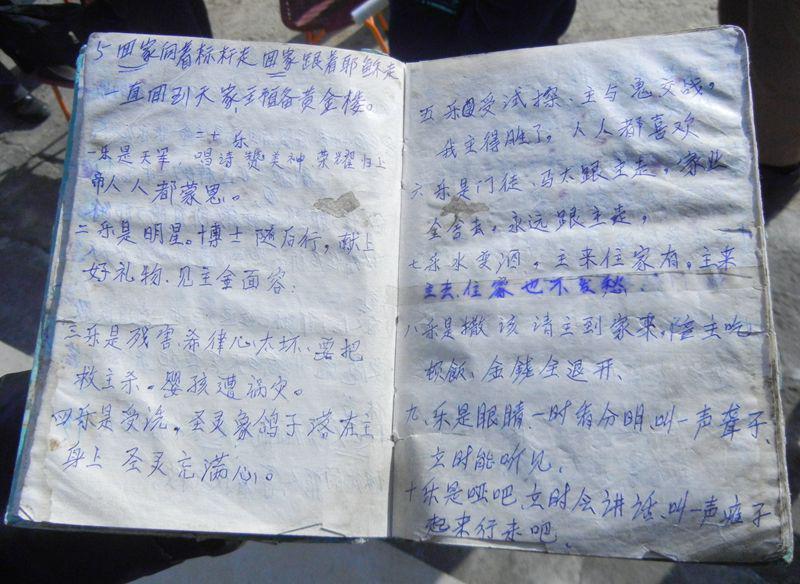 5 回家向着标杆走 回家跟着耶稣走
一直回到天家,主预备黄金楼。
二十乐
一乐是天军,唱诗赞美神 荣耀归上
帝人人都蒙恩。
二乐是明星。博士随后行,献上
好礼物.见主金面容:
三乐是残害、希律心太坏、要把
救主杀。婴孩遭祸灾。
四乐是受洗,圣灵象鸽子落在主
身上 圣灵充满心。
五乐受试探、主与鬼交战。
我主得胜了,人人都喜欢
六乐是门徒、马太跟主走,家业
全舍去,永远跟主走,
七乐水变酒,主来住家有。主来
主去、住家也不发愁.
八乐是撒该 请主到家来、陪主吃
顿飯、金钱全退开、
九、乐是眼睛、一时看分明、叫一声聋子、
立时能听见、
十乐是哑吧、立时会讲话、叫一声瘫子
起来行来吧、